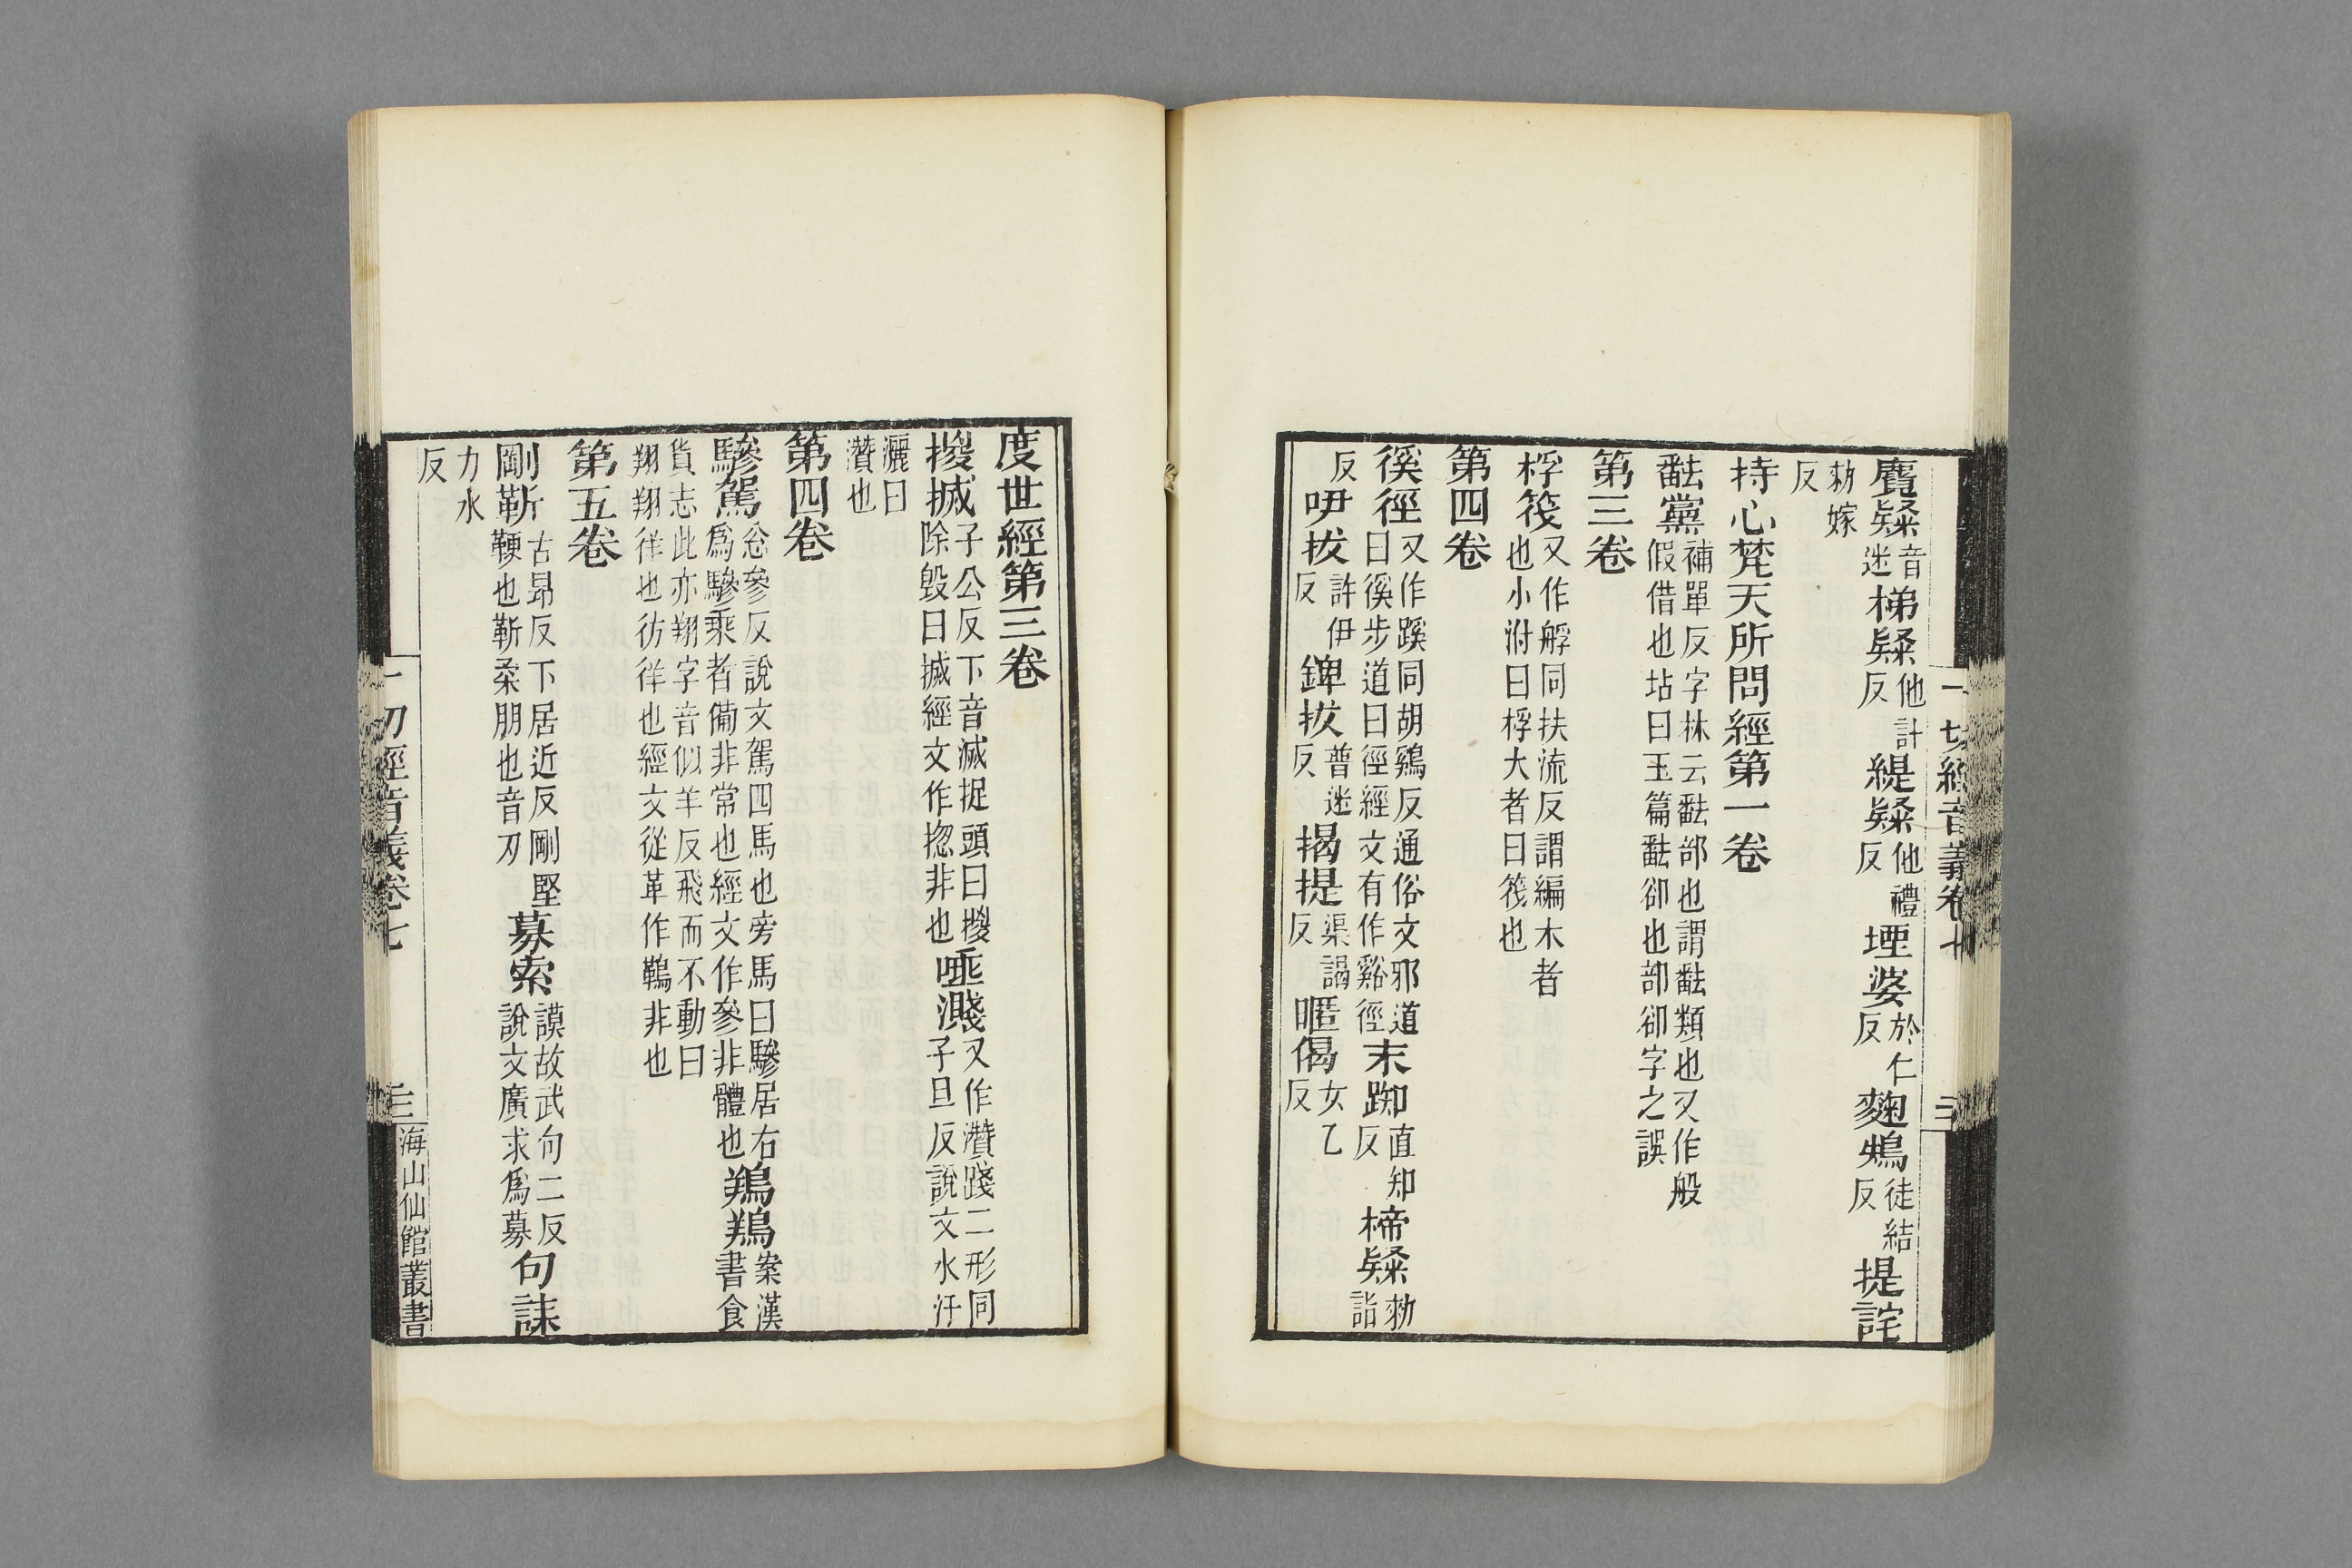 一切經音義卷七 三
麑疑音迷梯疑他計反緹疑他禮反堙婆於仁反麴徒結反提詫
勑嫁反
持心梵天所問經第一卷
㽃黨補單反字林云㽃部也謂㽃類也又作般假借也坫曰玉篇㽃卻也部卻字之誤
第三卷
桴筏又作艀同扶流反謂編木者也小泭曰桴大者曰筏也
第四卷
徯徑又作蹊同胡鷄反通俗文邪道曰徯步道曰徑經文有作谿徑末踟直知反楴疑勑詣
反吚拔許伊反錍拔普迷反揭提渠謁反暱偈女乙反
度世經第三卷
㨑搣子公反下音滅捉頭曰㨑除毀曰搣經文作揔非也唾濺又作灒踐二形同子旦反說文水汙
灑曰灒也
第四卷
驂駕忩參反說文駕四馬也旁馬曰驂居右爲驂乘者備非常也經文作參非體也鶐鶐案漢書食
貨志此亦翔字音似羊反飛而不動曰翔翔徉也彷徉也經文從革作鞽非也
第五卷
剛靳古昂反下居近反剛堅鞕也靳柔朋也音刃募索謨故武句二反說文廣求爲募句誄
力水反
一切經音義卷七 三 海山仙館叢書